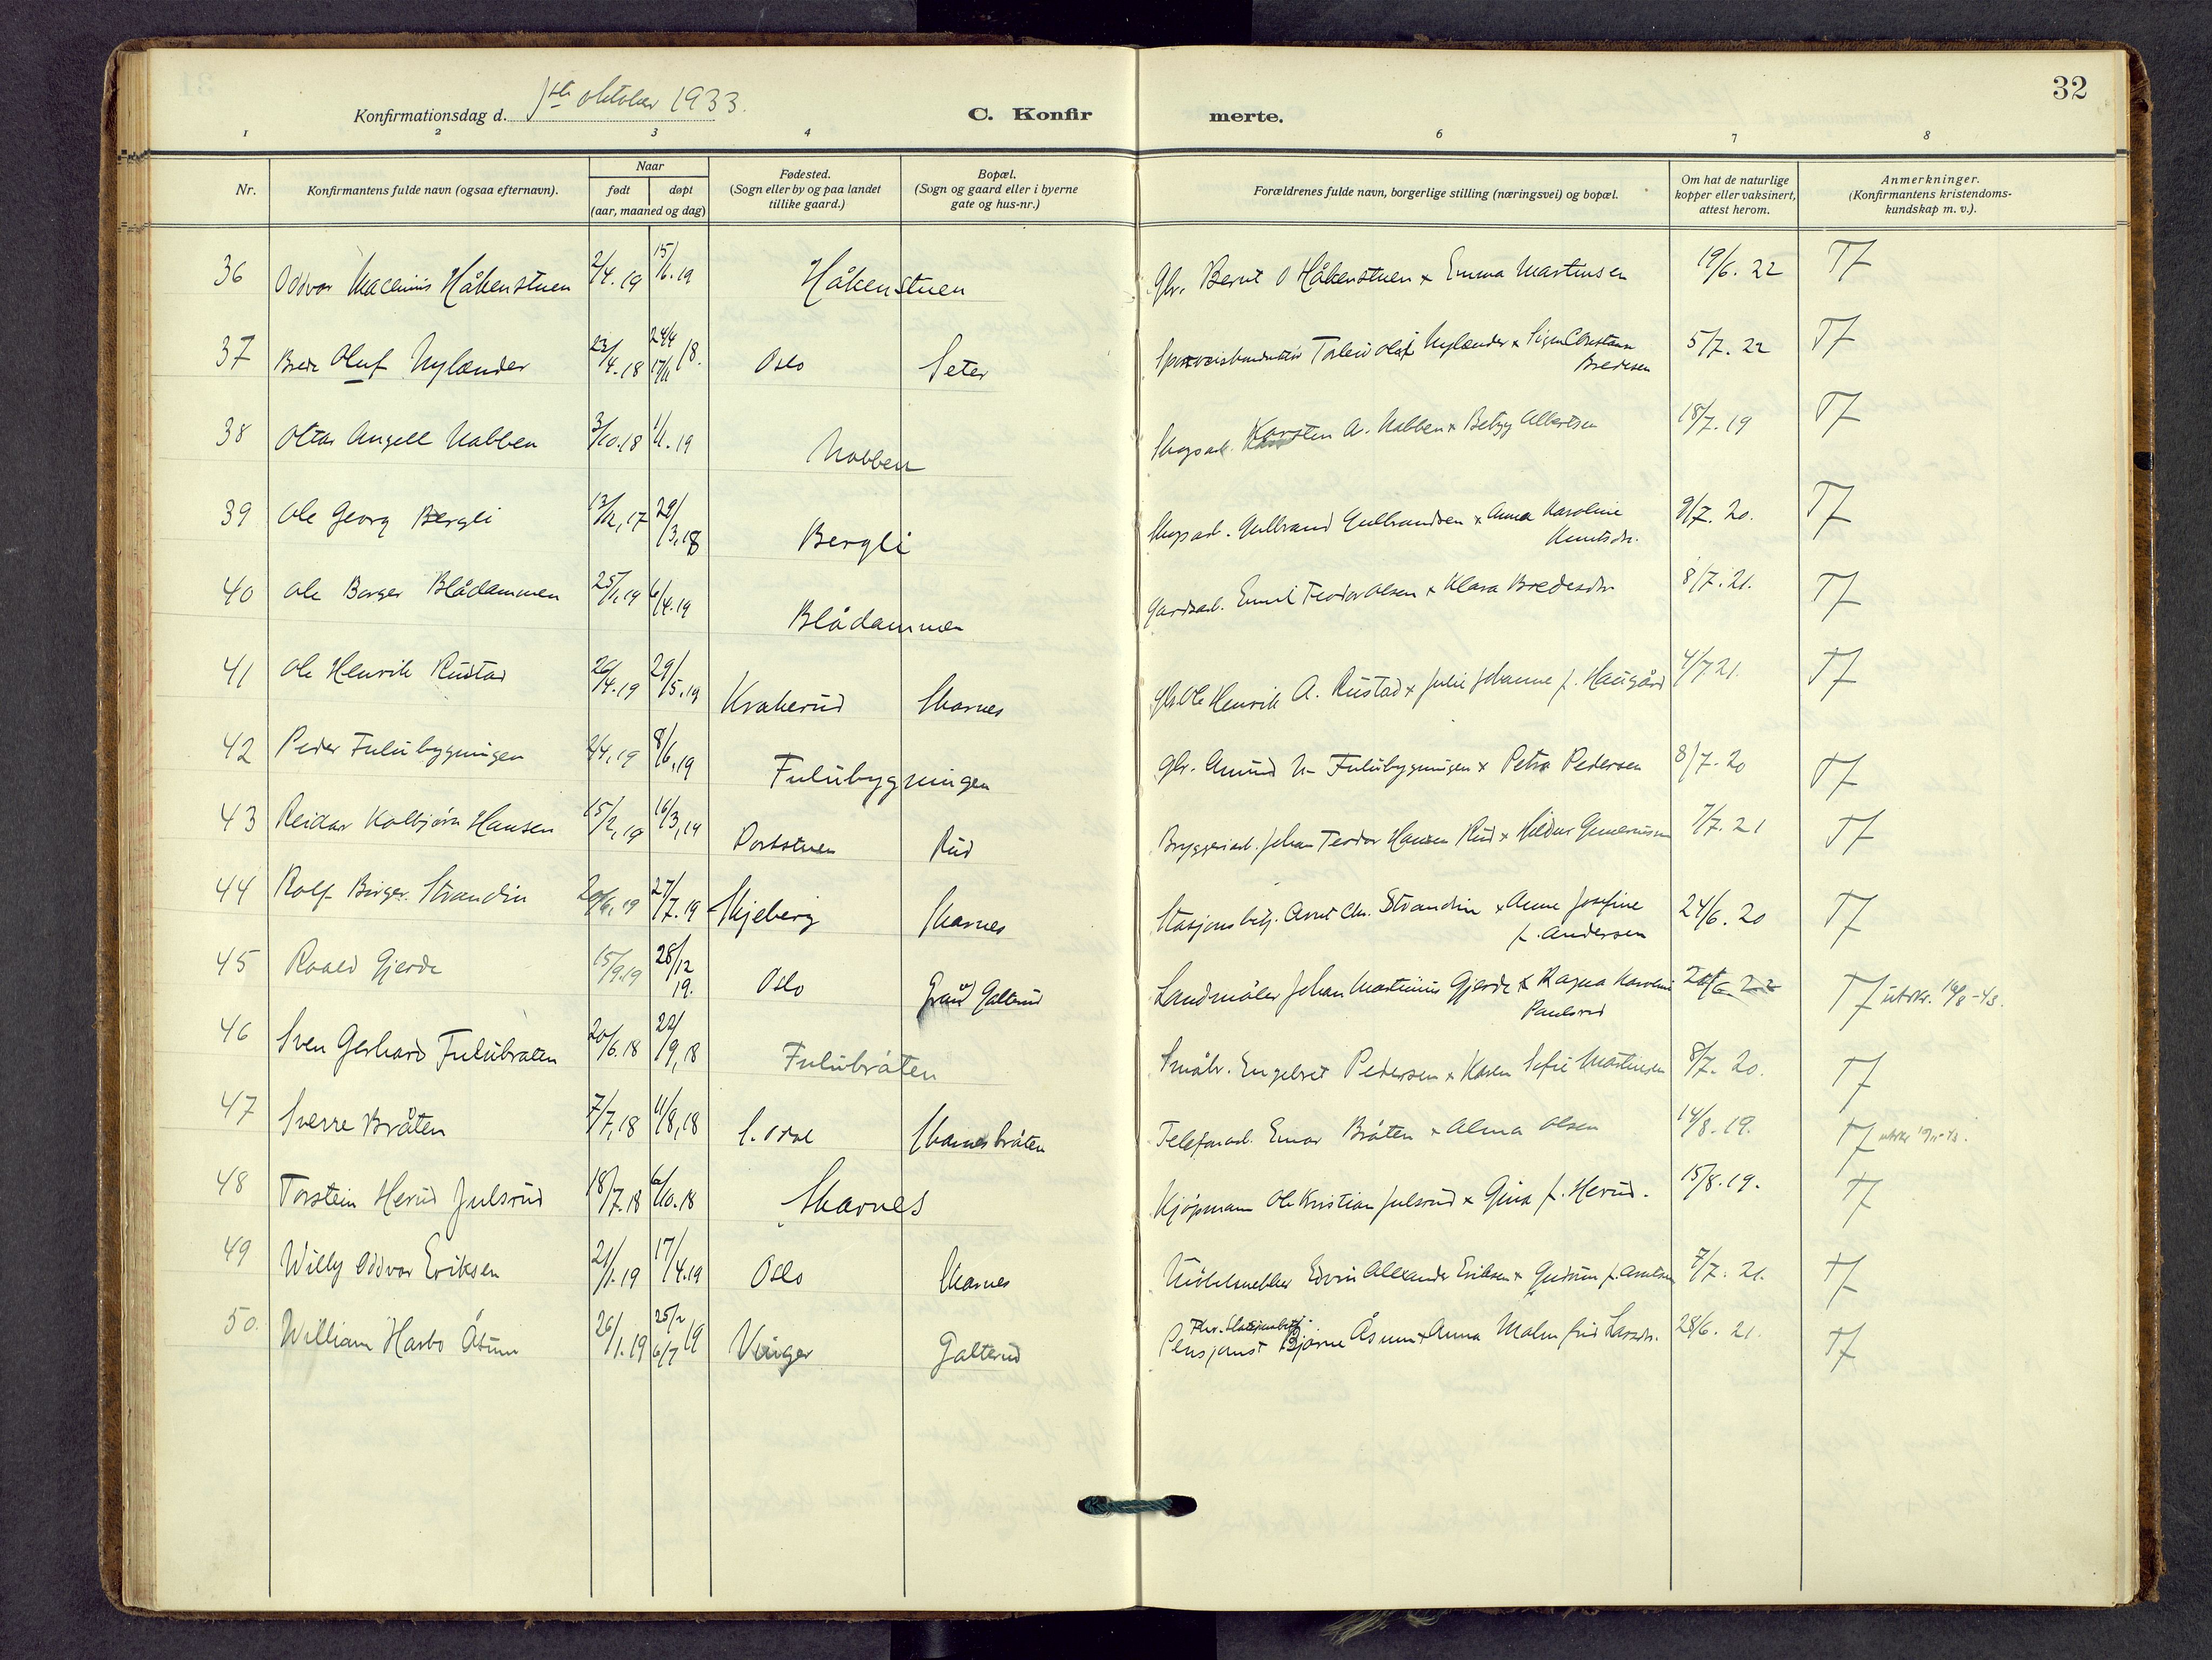 32
Konfirmationsdag d. 1ste oktober 1933.
C. Konfir merte.
1 2 3 4 6 7 8
Nr.
Konfirmantens fulde navn (ogsaa efternavn).
Naar
født
døpt
(aar, maaned og dag)
Fødested.
(Sogn eller by og paa landet
tillike gaard.)
Bopæl.
(Sogn og gaard eller i byerne
gate og hus-nr.)
Forældrenes fulde navn, borgerlige stilling (næringsvei) og bopæl.
Om hat de naturlige
kopper eller vaksinert,
attest herom.
Anmerkninger.
(Konfirmantens kristendoms-
kundskap m. v.).
36 Oddvar Håkenstuen 2/4.19 15/6.19 Håkenstuen Gbr. Bernt O Håkenstuen x Emma Martinsen 19/6. 22 Tf
37 Brede Oluf Nylænder 23/4.18 24/4 17/11 18. Oslo Seter Olaf Nylænder x Signe
Bredesen 5/7. 22 Tf
38 Ottar Angell Nabben 3/10.18 1/1.19 Nabben Skogsarb. Karsten A. Nabben x Betzy Albertsen 18/7.19 Tf
39 Ole Georg Bergli 13/12,17 29/3,18 Bergli Skogsarb. Gulbrand Gulbrandsen x Anna Karoline
Knutsdtr. 9/7. 20. Tf
40 Ole Borger Blådammen 25/1,19 6/4.19 Blådammen Gardsarb. Emil Teodor Olsen x Klara Bredesdtr 8/7.21. Tf
41 Ole Henrik Rustad 26/4.19 29/5.19 Krakerud Skarnes Gbr. Ole Henrik A. Rustad x Julie Johanne f. Haugård 4/7 21. Tf
42 Peder Fulubygningen 2/4,19 8/6,19 Fulubygningen Gbr. Amund N. Fulubygningen x Petra Pedersen 8/7. 20 Tf
43 Reidar Kolbjørn Hansen 15/2,19 16/3,19 Portstuen Rud Bryggeriarb. Johan Teodor Hansen Rud x Hildur 7/7. 21 Tf
44 Rolf Birger Strandin 20/6,19 27/7.19 Skjeberg Skarnes Stasjonsbetj. Arnt Chr. Strandin x Anne Josefine
f. Andersen 24/6. 20 Tf
45 Roald Gjerde 15/9.19 28/12 19. Oslo Galterud Landmåler Johan Martinius Gjerde x Ragna Karoline
Paulsrud Tf utskr. 16/8-43.
46 Sven Gerhard Fulubråten 20/6.18 22/9,18 Fulubråten Småbr. Engebret Pedersen x Karen Sofie Martinsen 8/7. 20. Tf
47 Sverre Bråten 7/7,18 11/8,18 S. Odal Skarnesbråten Telefonarb. Einar Bråten x Alma Olsen 14/8.19. Tf
48 Torstein Herud Julsrud 18/7.18 6/10.18 Skarnes Kjøpmann Ole Kristian Julsrud x Gina f. Herud. 15/8.19. Tf
49 Willy Oddvar Eriksen 21/1.19 17/4.19 Oslo Skarnes Edvin Alexander Eriksen x Gudrun f. Arnesen 7/7. 21. Tf
50. William Harbo Åsum 26/1.19 25/2 6/7 19 Vinger Galterud Fhv. Stasjonsbetj.
Pensjonist Bjarne Åsum x Anna Malmfrid Larsdtr. 28/6. 21. Tf